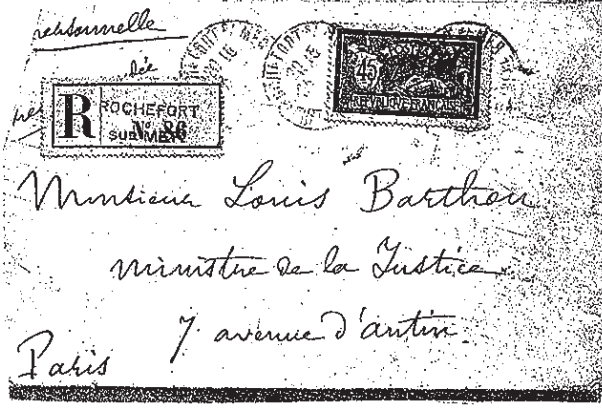 personnelle
R
ROCHEFORT
SUR MER
No 86
45
REPUBLIQUE FRANÇAISE
Monsieur Louis Barthou
ministre de la Justice
7 avenue d'antin
Paris